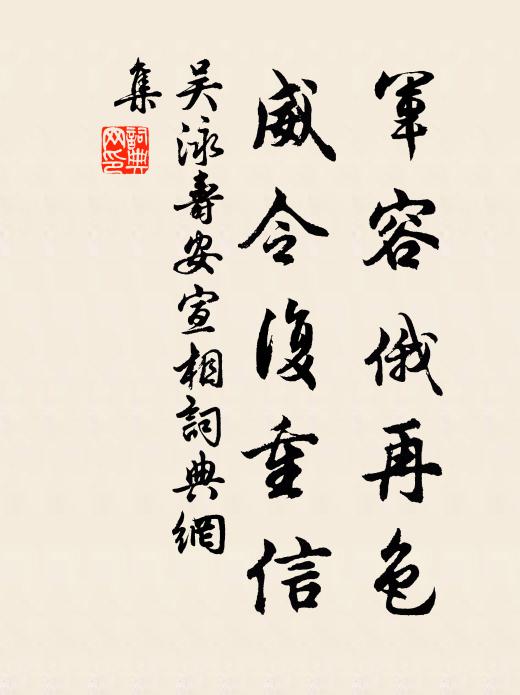 軍容俄再色
威令復重信
吴泳壽安宣相詞典網
集
詞典网印